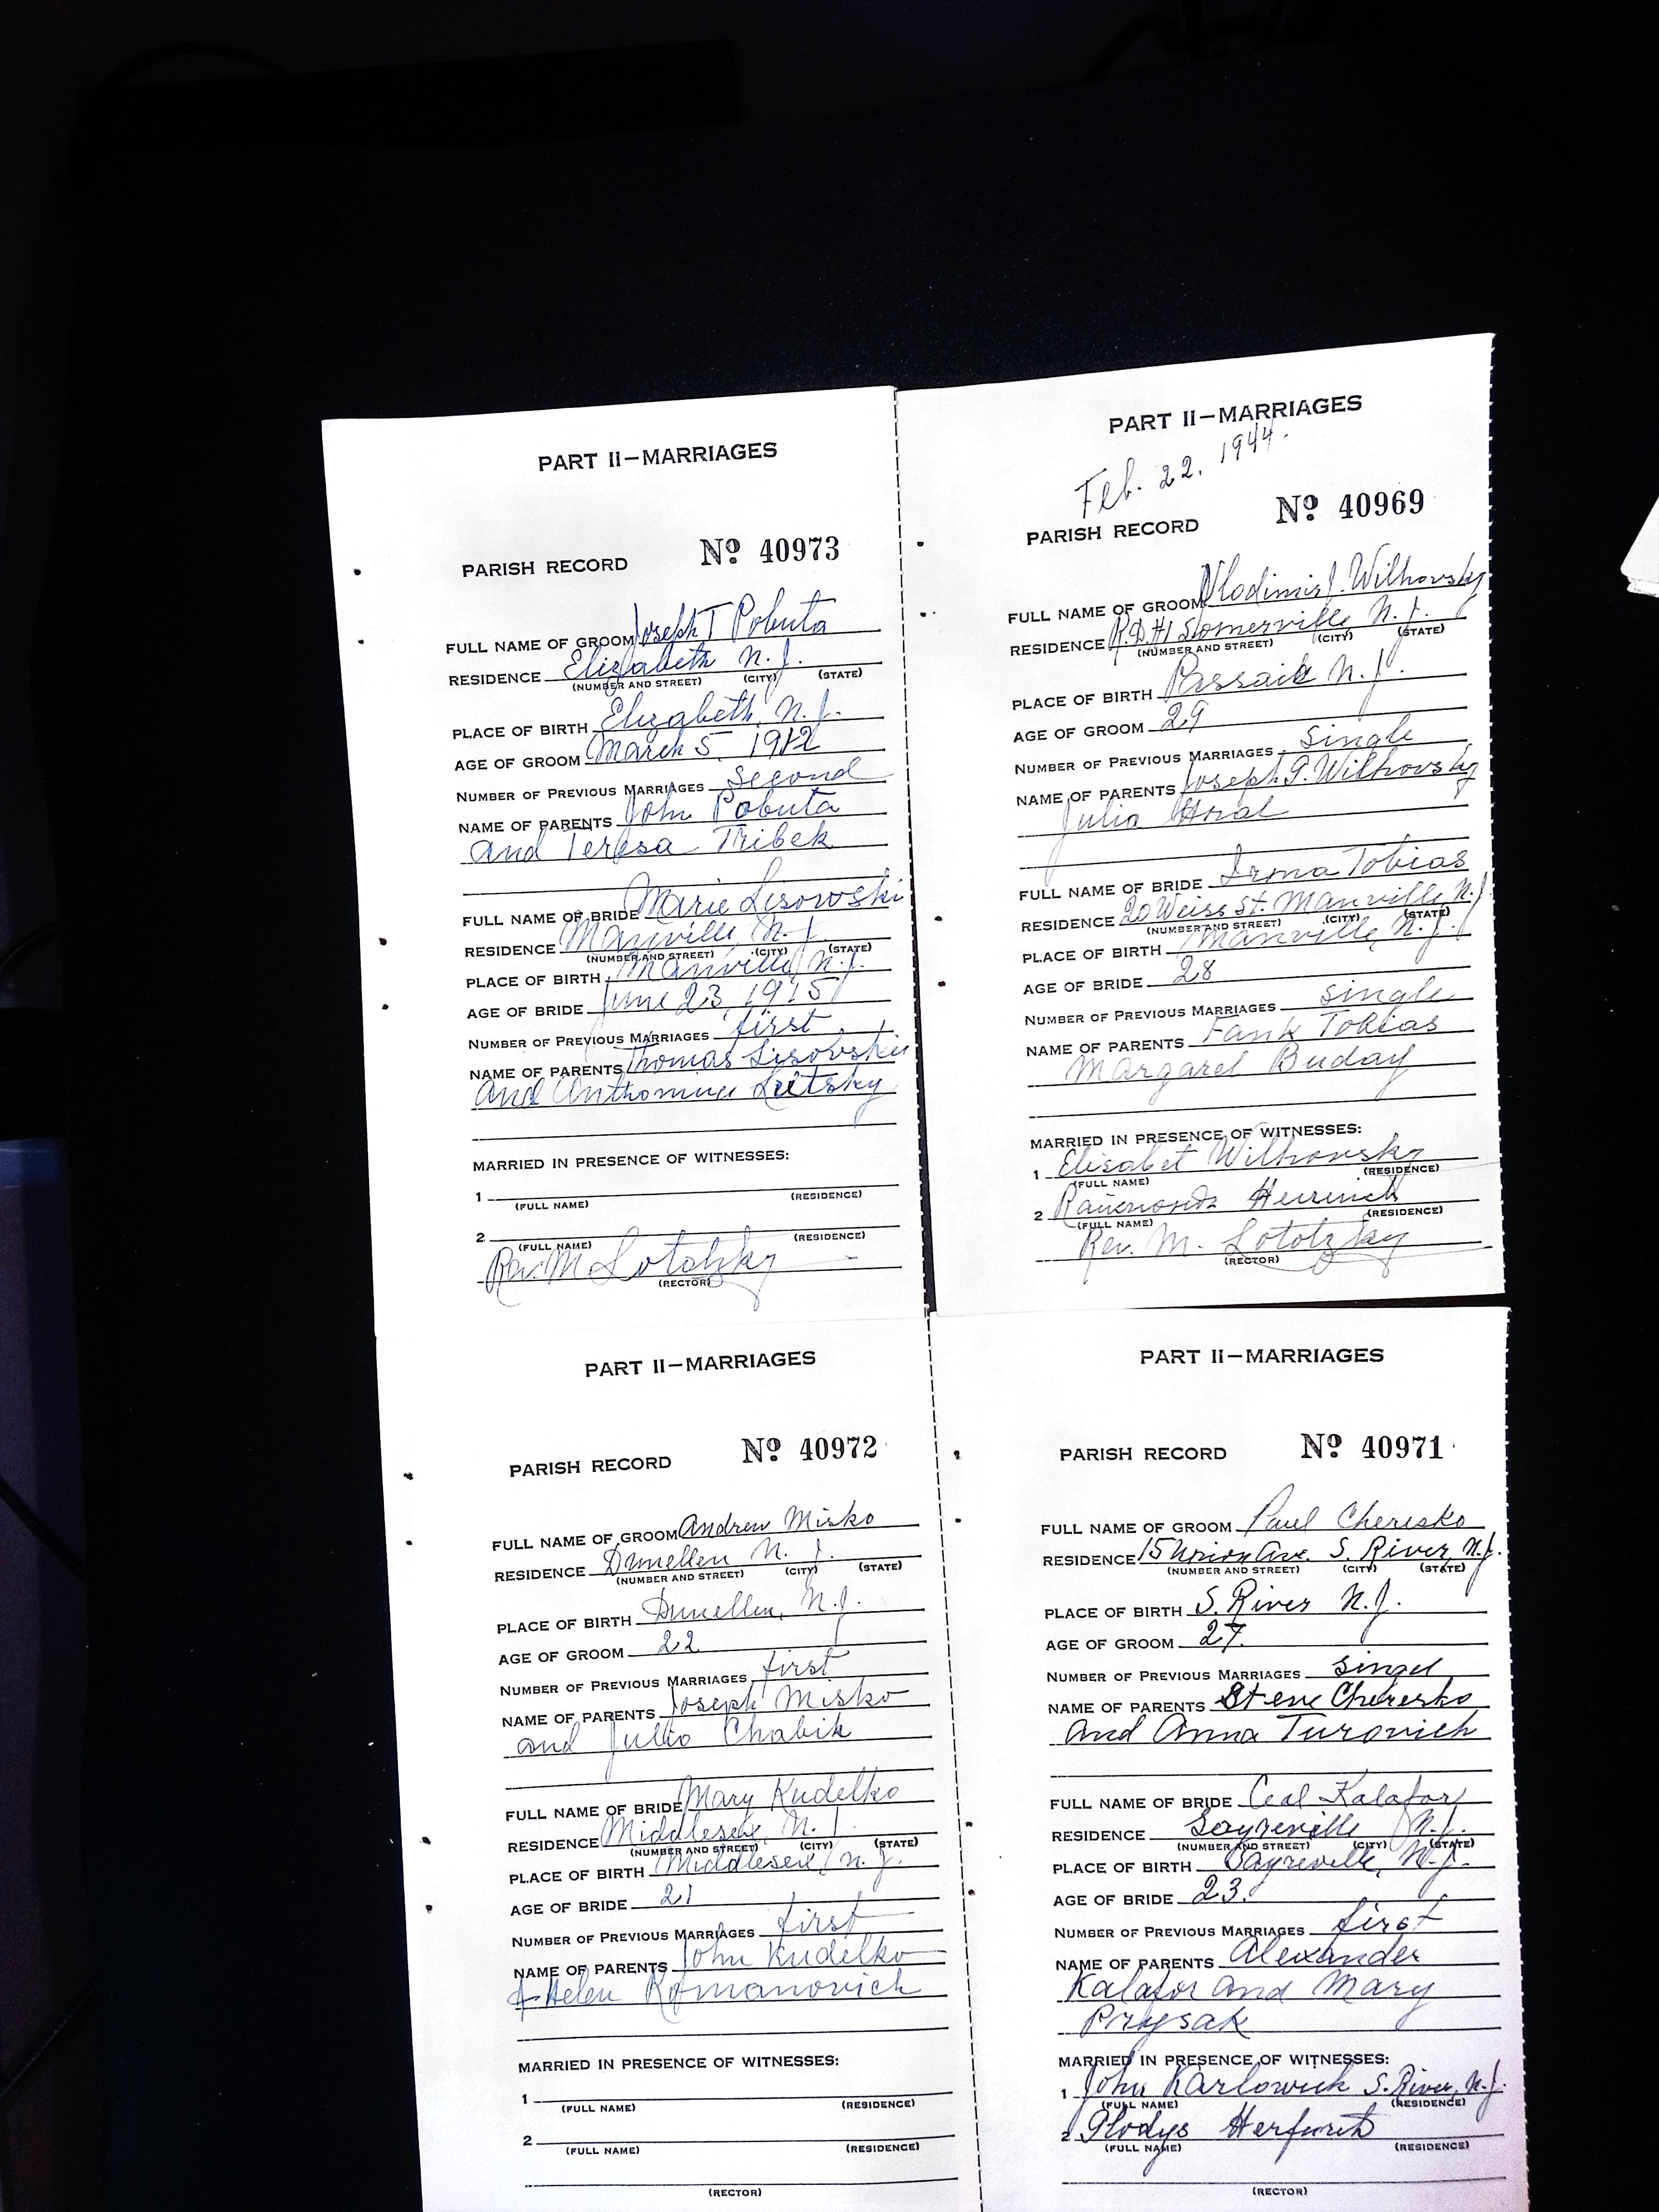 PART II—MARRIAGES
PARISH RECORD Nº 40973
FULL NAME OF GROOM Joseph T Pobuta
RESIDENCE Elizabeth N. J.
(NUMBER AND STREET) (CITY) (STATE)
PLACE OF BIRTH Elizabeth, N. J.
AGE OF GROOM March 5, 1912
NUMBER OF PREVIOUS MARRIAGES Second
NAME OF PARENTS John Pobuta
and Teresa Tribek
FULL NAME OF BRIDE Marie Lisowski
RESIDENCE Manville, N. J.
(NUMBER AND STREET) (CITY) (STATE)
PLACE OF BIRTH Manville, N. J.
AGE OF BRIDE June 23, 1915
NUMBER OF PREVIOUS MARRIAGES first
NAME OF PARENTS Thomas
and
MARRIED IN PRESENCE OF WITNESSES:
1
(FULL NAME) (RESIDENCE)
2
(FULL NAME) (RESIDENCE)
Rev. M Lototzky
(RECTOR)
PART II—MARRIAGES
Feb. 22, 1944.
PARISH RECORD Nº 40969
FULL NAME OF GROOM Vlodimir J. Wilhovsky
RESIDENCE R.D.#1 Somerville, N. J.
(NUMBER AND STREET) (CITY) (STATE)
PLACE OF BIRTH Passaic N. J.
AGE OF GROOM 29
NUMBER OF PREVIOUS MARRIAGES Single
NAME OF PARENTS Joseph G. Wilhovsky
Julia
FULL NAME OF BRIDE Irma Tobias
RESIDENCE 20 Weiss St. Manville, N. J.
(NUMBER AND STREET) (CITY) (STATE)
PLACE OF BIRTH Manville, N. J.
AGE OF BRIDE 28
NUMBER OF PREVIOUS MARRIAGES single
NAME OF PARENTS Fank Tobias
Margaret Buday
MARRIED IN PRESENCE OF WITNESSES:
1 Elisabet Wilhovsky
(FULL NAME) (RESIDENCE)
2
(FULL NAME) (RESIDENCE)
Rev. M. Lototzky
(RECTOR)
PART II—MARRIAGES
PARISH RECORD Nº 40972
FULL NAME OF GROOM Andrew Misko
RESIDENCE Dunellen N. J.
(NUMBER AND STREET) (CITY) (STATE)
PLACE OF BIRTH Dunellen, N. J.
AGE OF GROOM 22
NUMBER OF PREVIOUS MARRIAGES first
NAME OF PARENTS Joseph Misko
and Julia Chabik
FULL NAME OF BRIDE Mary Kudelko
RESIDENCE Middlesex, N. J.
(NUMBER AND STREET) (CITY) (STATE)
PLACE OF BIRTH Middlesex, N. J.
AGE OF BRIDE 21
NUMBER OF PREVIOUS MARRIAGES first
NAME OF PARENTS John Kudelko
& Helen Romanovich
MARRIED IN PRESENCE OF WITNESSES:
1
(FULL NAME) (RESIDENCE)
2
(FULL NAME) (RESIDENCE)
(RECTOR)
PART II—MARRIAGES
PARISH RECORD Nº 40971
FULL NAME OF GROOM Paul Cheresko
RESIDENCE 15 Union Ave. S. River, N. J.
(NUMBER AND STREET) (CITY) (STATE)
PLACE OF BIRTH S. River N. J.
AGE OF GROOM 27.
NUMBER OF PREVIOUS MARRIAGES singel
NAME OF PARENTS Steve Cheresko
and Anna Turovich
FULL NAME OF BRIDE Ceal Kalafor
RESIDENCE Sayreville N. J.
(NUMBER AND STREET) (CITY) (STATE)
PLACE OF BIRTH Sayreville, N. J.
AGE OF BRIDE 23.
NUMBER OF PREVIOUS MARRIAGES first
NAME OF PARENTS Alexander
Kalafor and Mary
Prysak
MARRIED IN PRESENCE OF WITNESSES:
1 John Karlowich S. River, N. J.
(FULL NAME) (RESIDENCE)
2 Glodys Herfurth
(FULL NAME) (RESIDENCE)
(RECTOR)